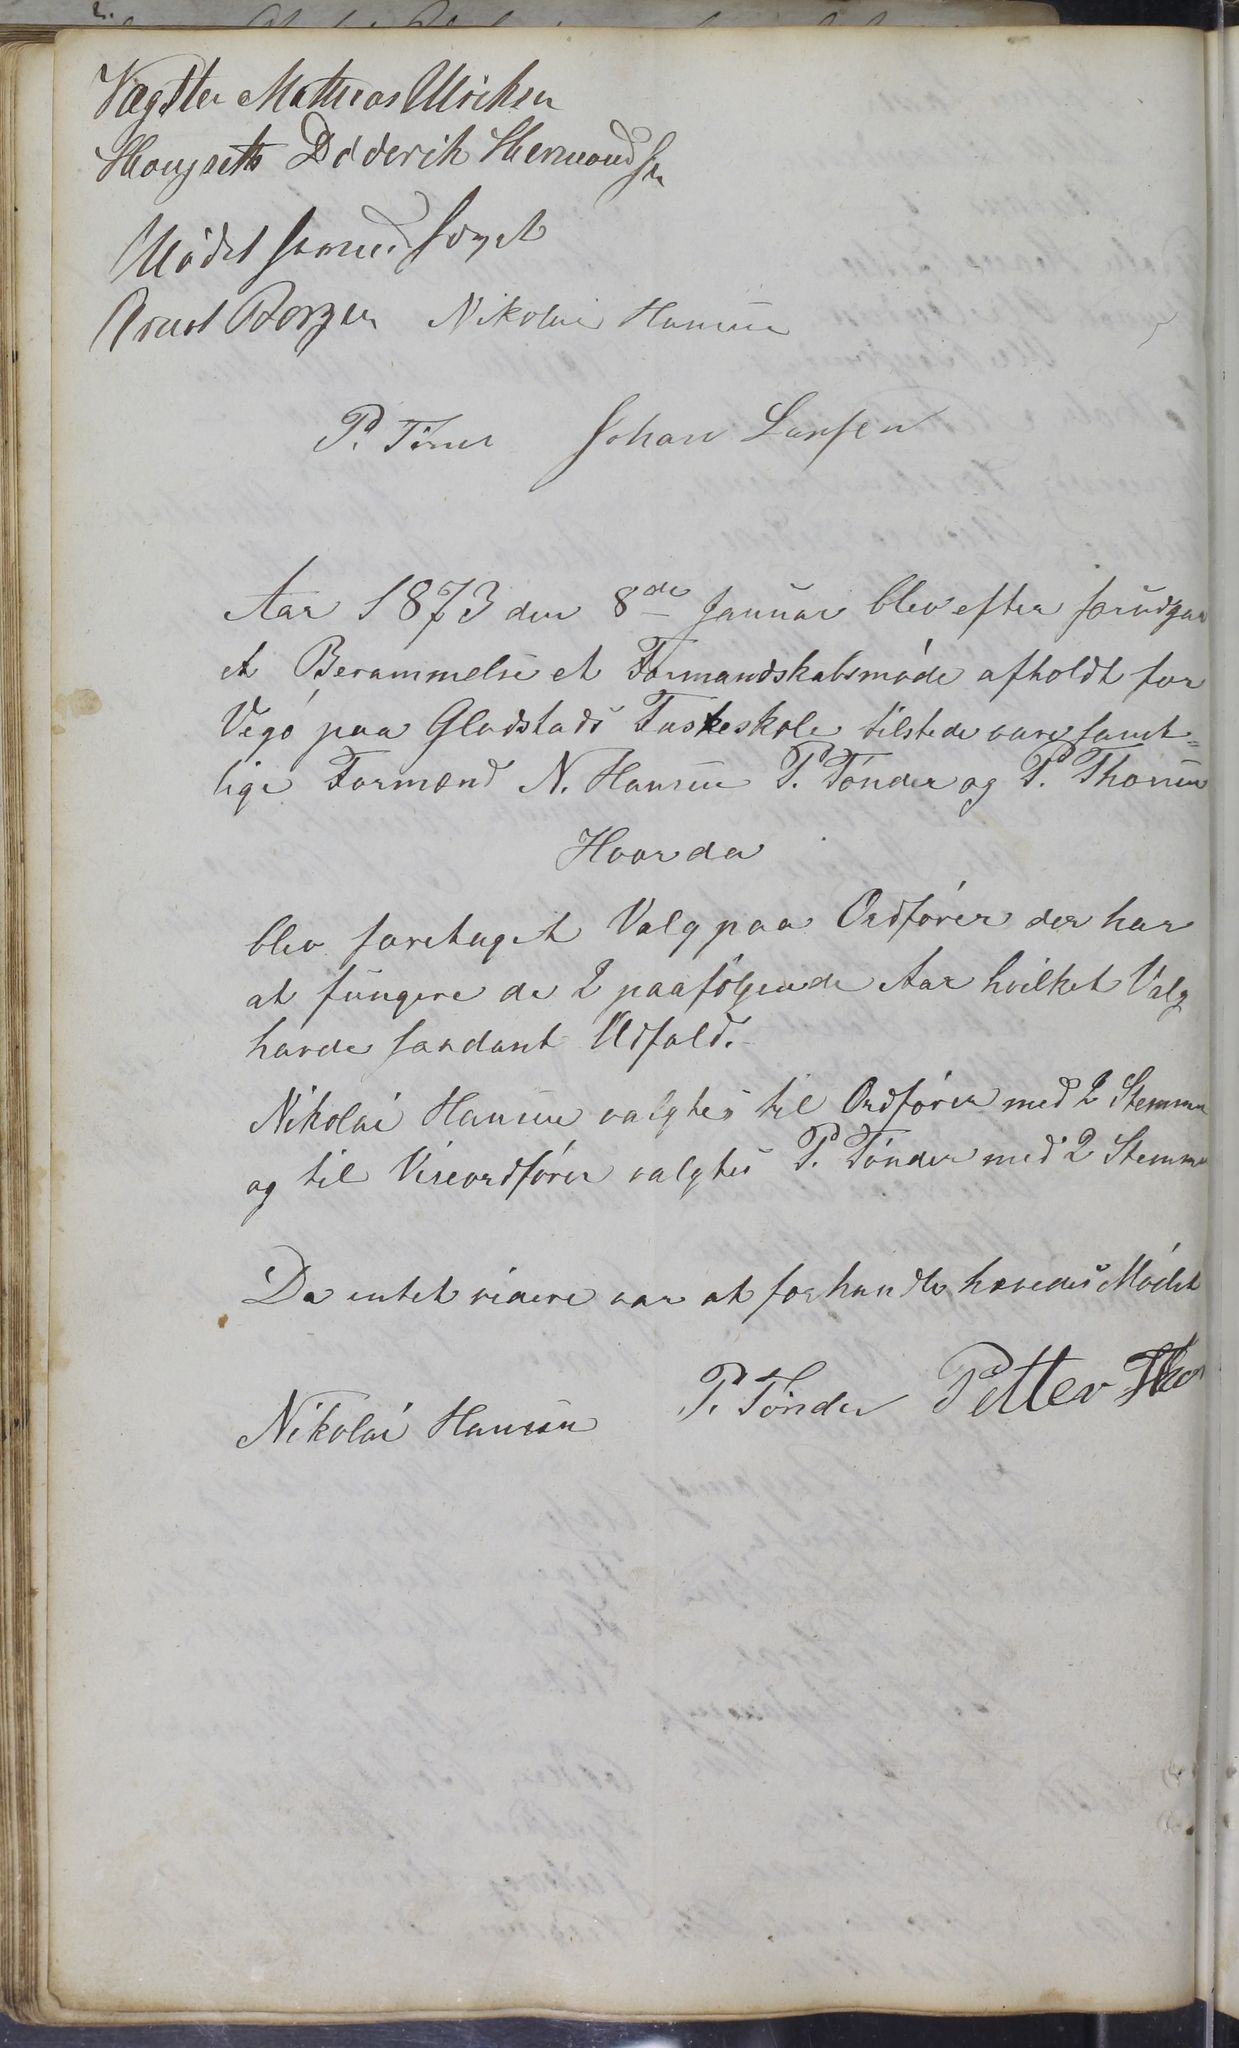 Vegsten Mathias Ulriksen
Hongseth Diderik Hermandsen
Mødet hævet
Arnt Borgen Nikolai Hansen
P. Johan Larsen
Aar 1873 den 8de Januar blev efter forudgaa
et Berammelse et Formandskabsmøde afholdt for
Vegø paa Gladstads Fasteskole tilstede vare samt=
lige Formænd N. Hansen P. Tønder og P. Thorsen
Hvorda
blev foretaget Valg paa Ordfører der har
at fungere de 2 paafølgende Aar hvilket Valg
havde saadant Udfald.
Nikolai Hansen valgtes til Ordfører med 2 Stemmer
og til Viseordfører valgtes P. Tønder med 2 Stemmer
Da intet videre var at forhandle hævedes Mødet
P. Tønder Petter Thor
Nikolai Hansen